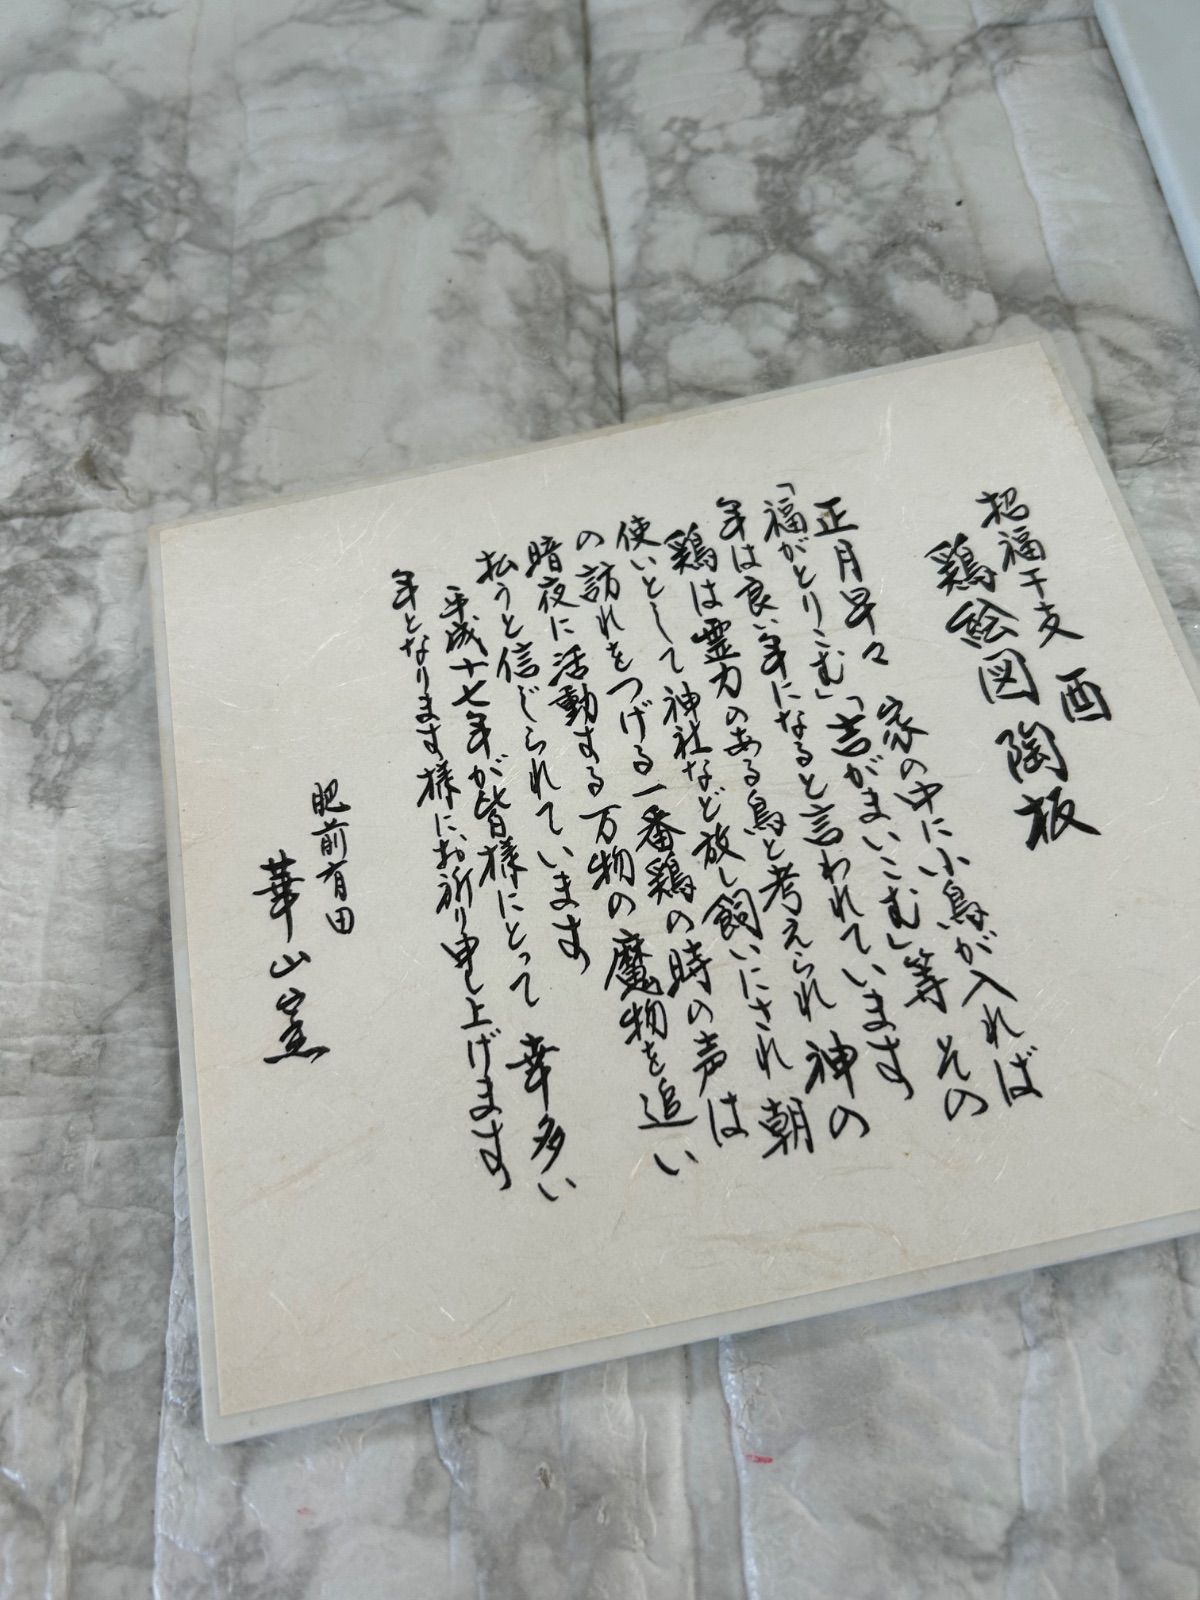 招福干支 酉
鶏絵図 陶板
正月早々 家の中に小鳥が入れば
「福がとりこむ」「吉がまいこむ」等 その
年は良い年になると言われています
鶏は霊力のある鳥と考えられ 神の
使いとして神社など放し飼いにされ 朝
の訪れをつげる一番鶏の時の声は
暗夜に活動する万物の魔物を追い
払うと信じられています
平成十七年が皆様にとって 幸多い
年となります様にお祈り申し上げます
肥前有田
華山窯